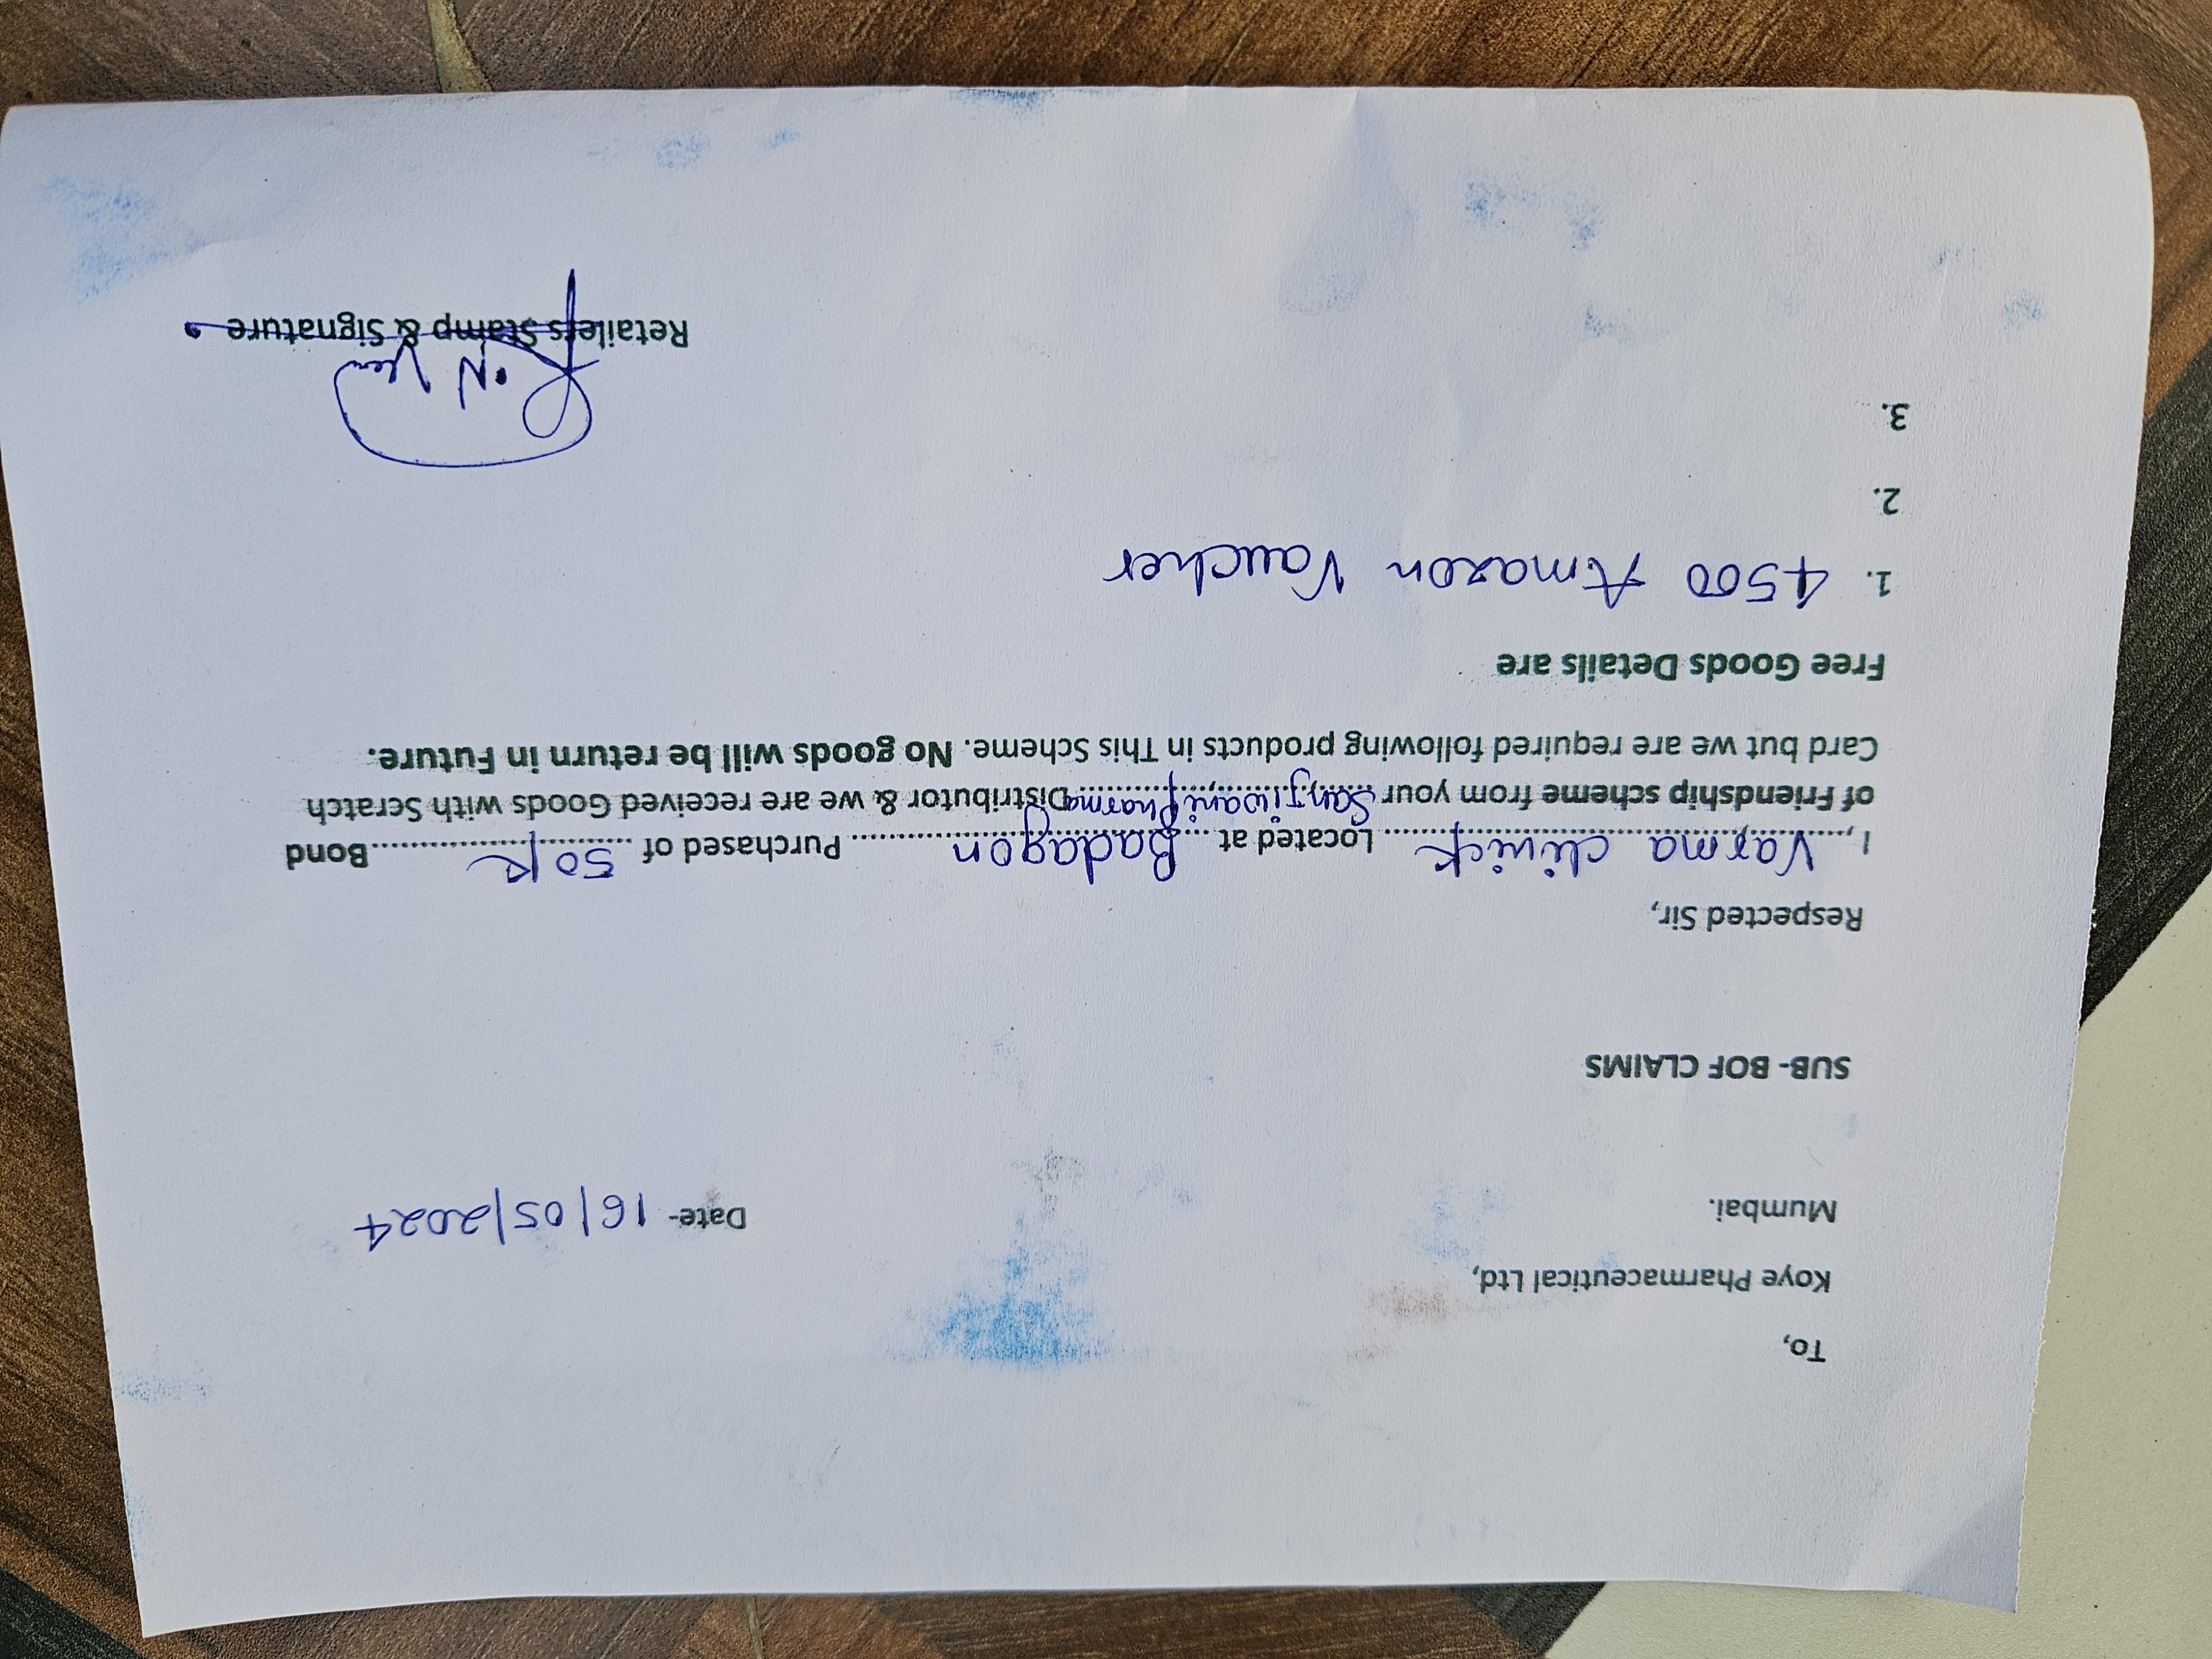 To,
Koye Pharmaceutical Ltd,
Mumbai.
Date- 16/05/2024
SUB- BOF CLAIMS
Respected Sir,
I, Varma clinick Located at Badagon Purchased of 50K Bond
of Friendship scheme from your Sanjiwani Pharma Distributor & we are received Goods with Scratch
Card but we are required following products in This Scheme. No goods will be return in Future.
Free Goods Details are
1. 4500 Amazon Vaucher
2.
3.
Retailers Stamp & Signature